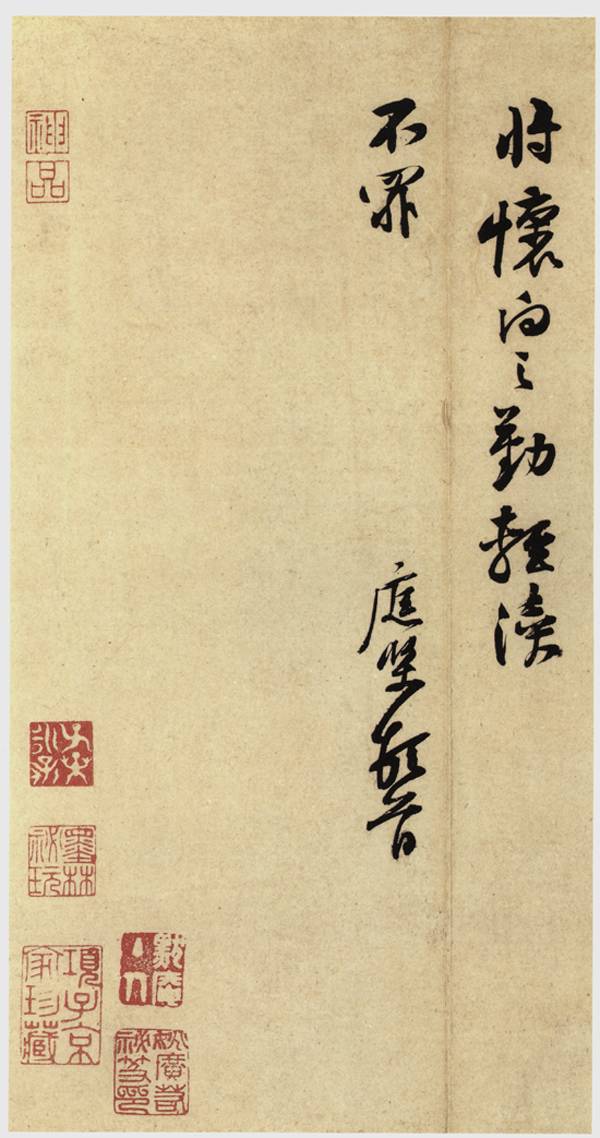 將懷向之勤輕瀆
不罪
庭堅頓首
神品
墨林祕玩
項子京家珍藏